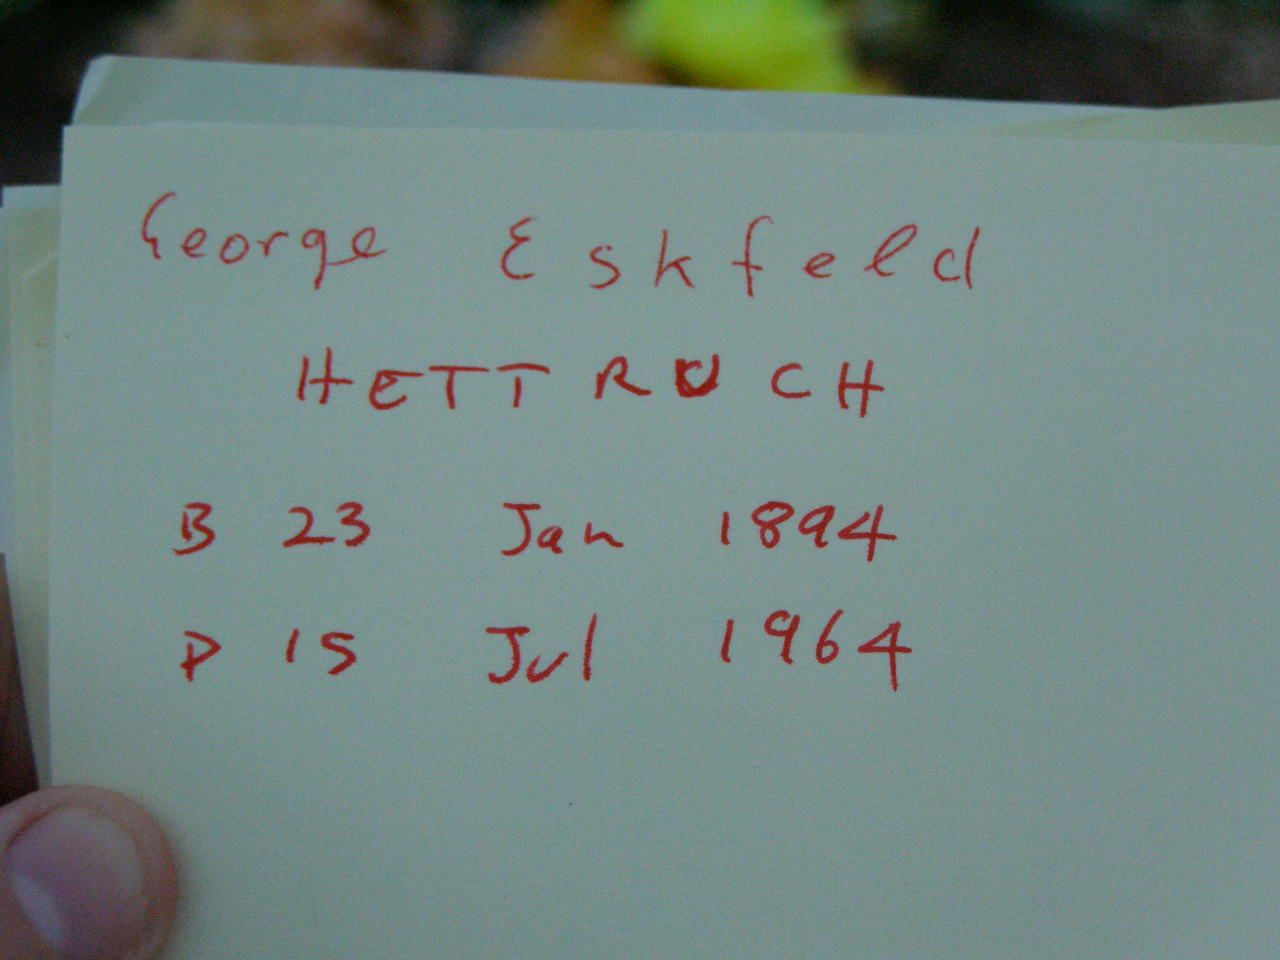 George Eskfeld
HETTRUCH
B 23 Jan 1894
D 15 Jul 1964